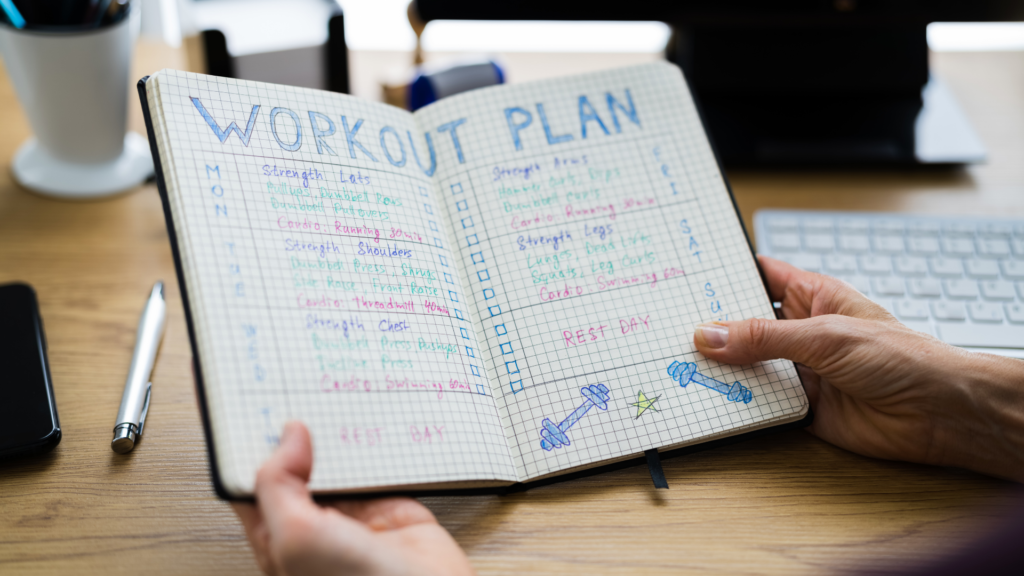 WORKOUT PLAN
MON
Strength Lats
Dumbbel Pullovers
Cardio: Running 30min
TUE
Strength Shoulders
Dumbbel Press, Shrugs
Side Raise, Front Raise
Cardio: threadmill 40min
WED
Strength Chest
Dumbbel Press, Pushups
Incline Press
Cardio Swimming 60min
REST DAY
FRI
Strength Arms
Hammer Curls,
Cardio Running 30min
SAT
Strength Legs
Lunges, Dead Lifts
Squats, Leg Curls
Cardio Swimming 60m
SU
REST DAY